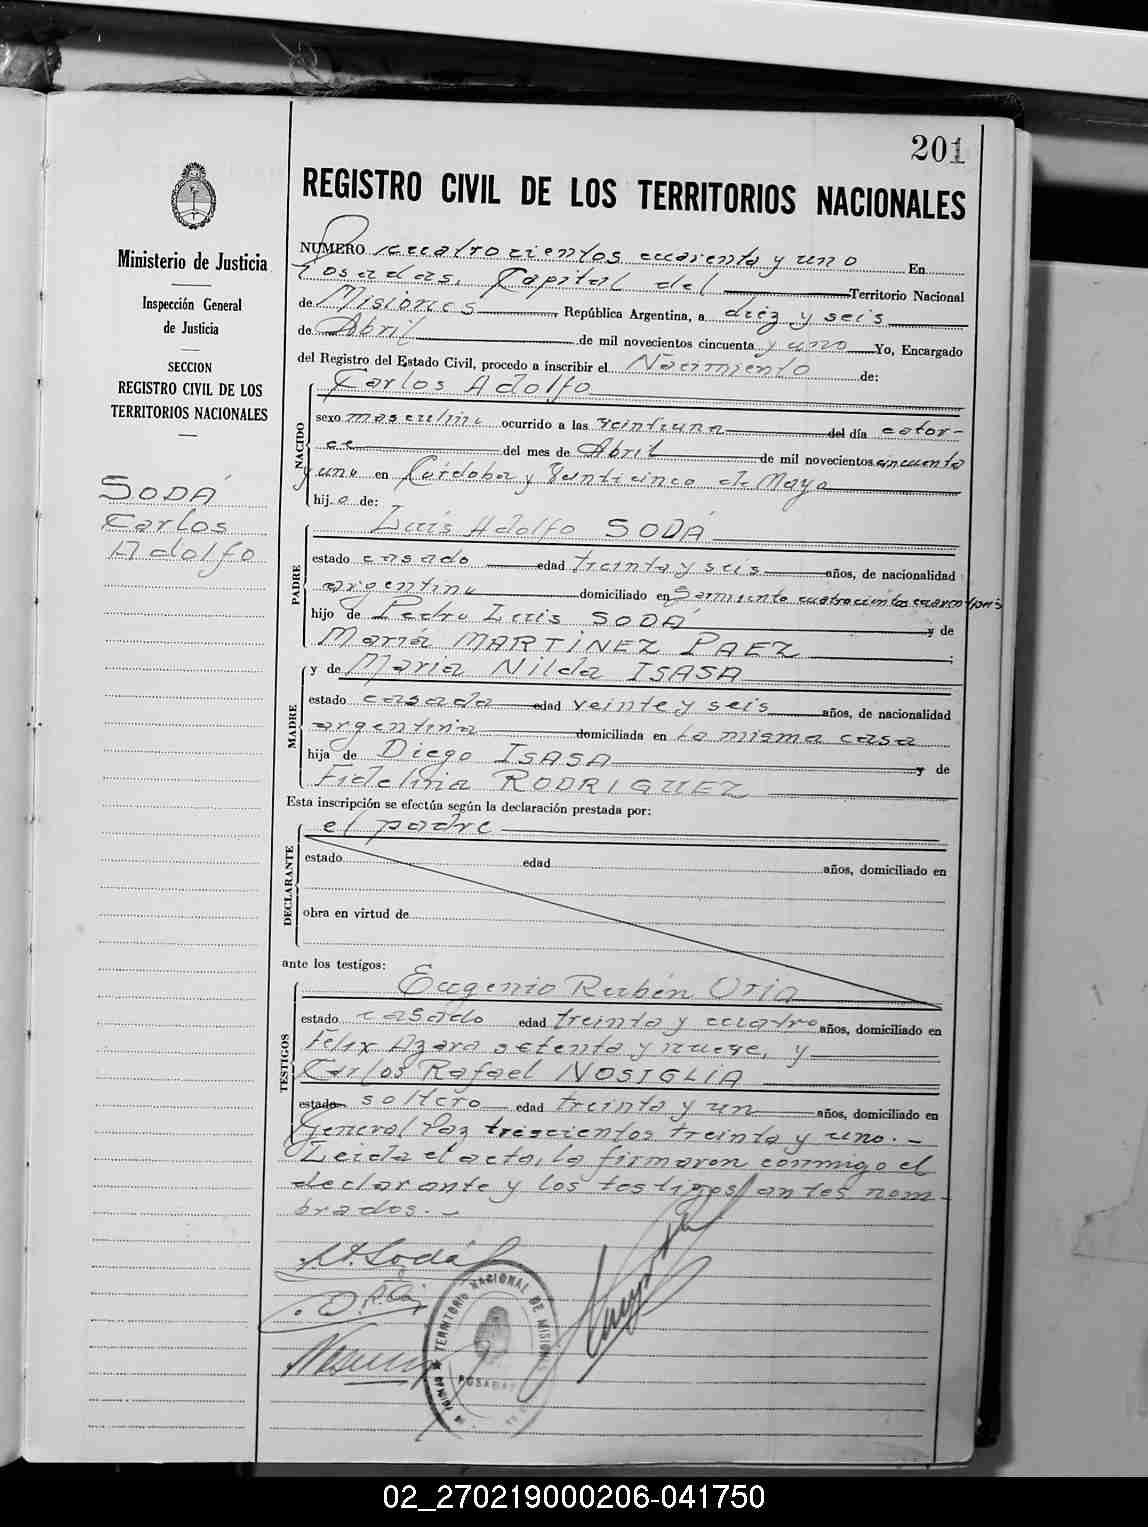 201
REGISTRO CIVIL DE LOS TERRITORIOS NACIONALES
Ministerio de Justicia
Inspección General
de Justicia
SECCION
REGISTRO CIVIL DE LOS
TERRITORIOS NACIONALES
SODÁ
Carlos
Adolfo
NUMERO cuatrocientos cuarenta y uno En
Posadas, Capital del Territorio Nacional
de Misiones, República Argentina, a diez y seis
de Abril de mil novecientos cincuenta y uno Yo, Encargado
del Registro del Estado Civil, procedo a inscribir el Nacimiento de:
Carlos Adolfo
NACIDO
sexo masculino ocurrido a las veintiuna del día cator-
ce del mes de Abril de mil novecientos cincuenta
y uno en Córdoba y Veinticinco de Mayo
hij o de:
PADRE
Luis Adolfo SODÁ
estado casado edad treinta y seis años, de nacionalidad
argentino domiciliado en Sarmiento cuatrocientos cuarentiseis
hijo de Pedro Luis SODÁ y de
María MARTINEZ PAEZ ;
MADRE
y de Maria Nilda ISASA
estado casada edad veinte y seis años, de nacionalidad
argentina domiciliada en la misma casa
hija de Diego ISASA y de
Fidelina RODRIGUEZ
Esta inscripción se efectúa según la declaración prestada por:
DECLARANTE
el padre
estado edad años, domiciliado en
obra en virtud de
ante los testigos:
TESTIGOS
Eugenio Rubén Oria
estado casado edad treinta y cuatro años, domiciliado en
Felix Azara setenta y nueve, y
Carlos Rafael NOSIGLIA
estado soltero edad treinta y un años, domiciliado en
General Paz trescientos treinta y uno.-
Leida el acta, la firmaron conmigo el
declarante y los testigos antes nom-
brados.-
A. Sodá
TERRITORIO NACIONAL DE MISIONES
POSADAS
02_270219000206-041750